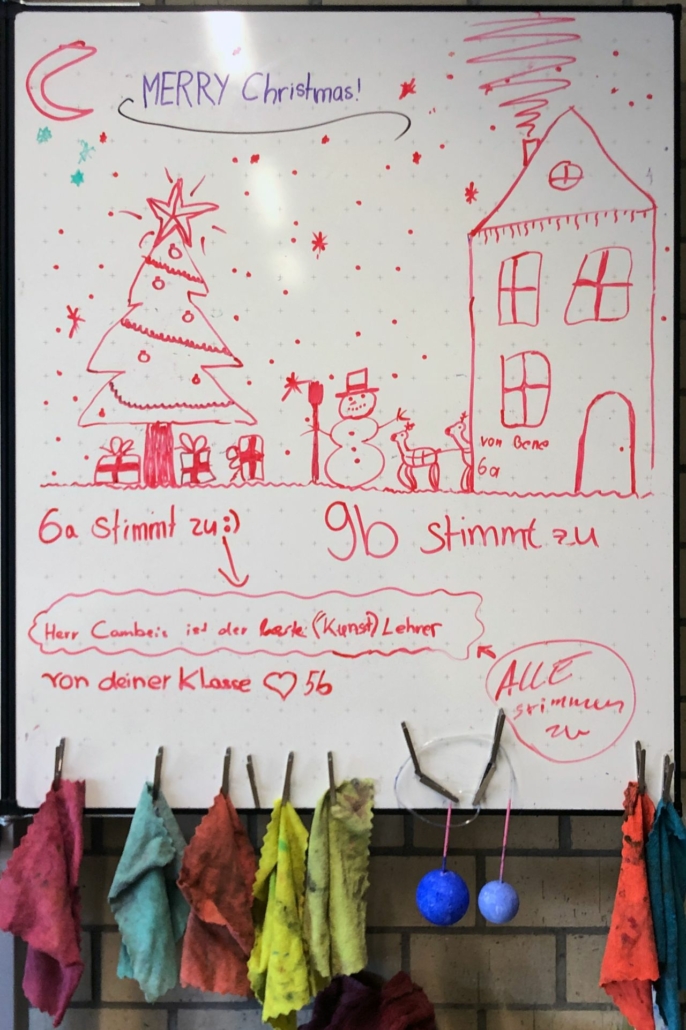 MERRY Christmas!
von Bene
6a
6a stimmt zu :)
9b stimmt zu
Herr Cambeis ist der beste (Kunst) Lehrer
von deiner Klasse ♡ 5b
ALLE
stimmen
zu